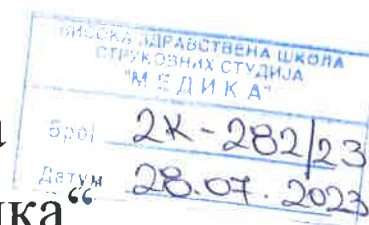 ВИСОКА ЗДРАВСТВЕНА ШКОЛА
СТРУКОВНИХ СТУДИЈА
"МЕДИКА"
Број 2К-282/23
Датум 28.07.2023